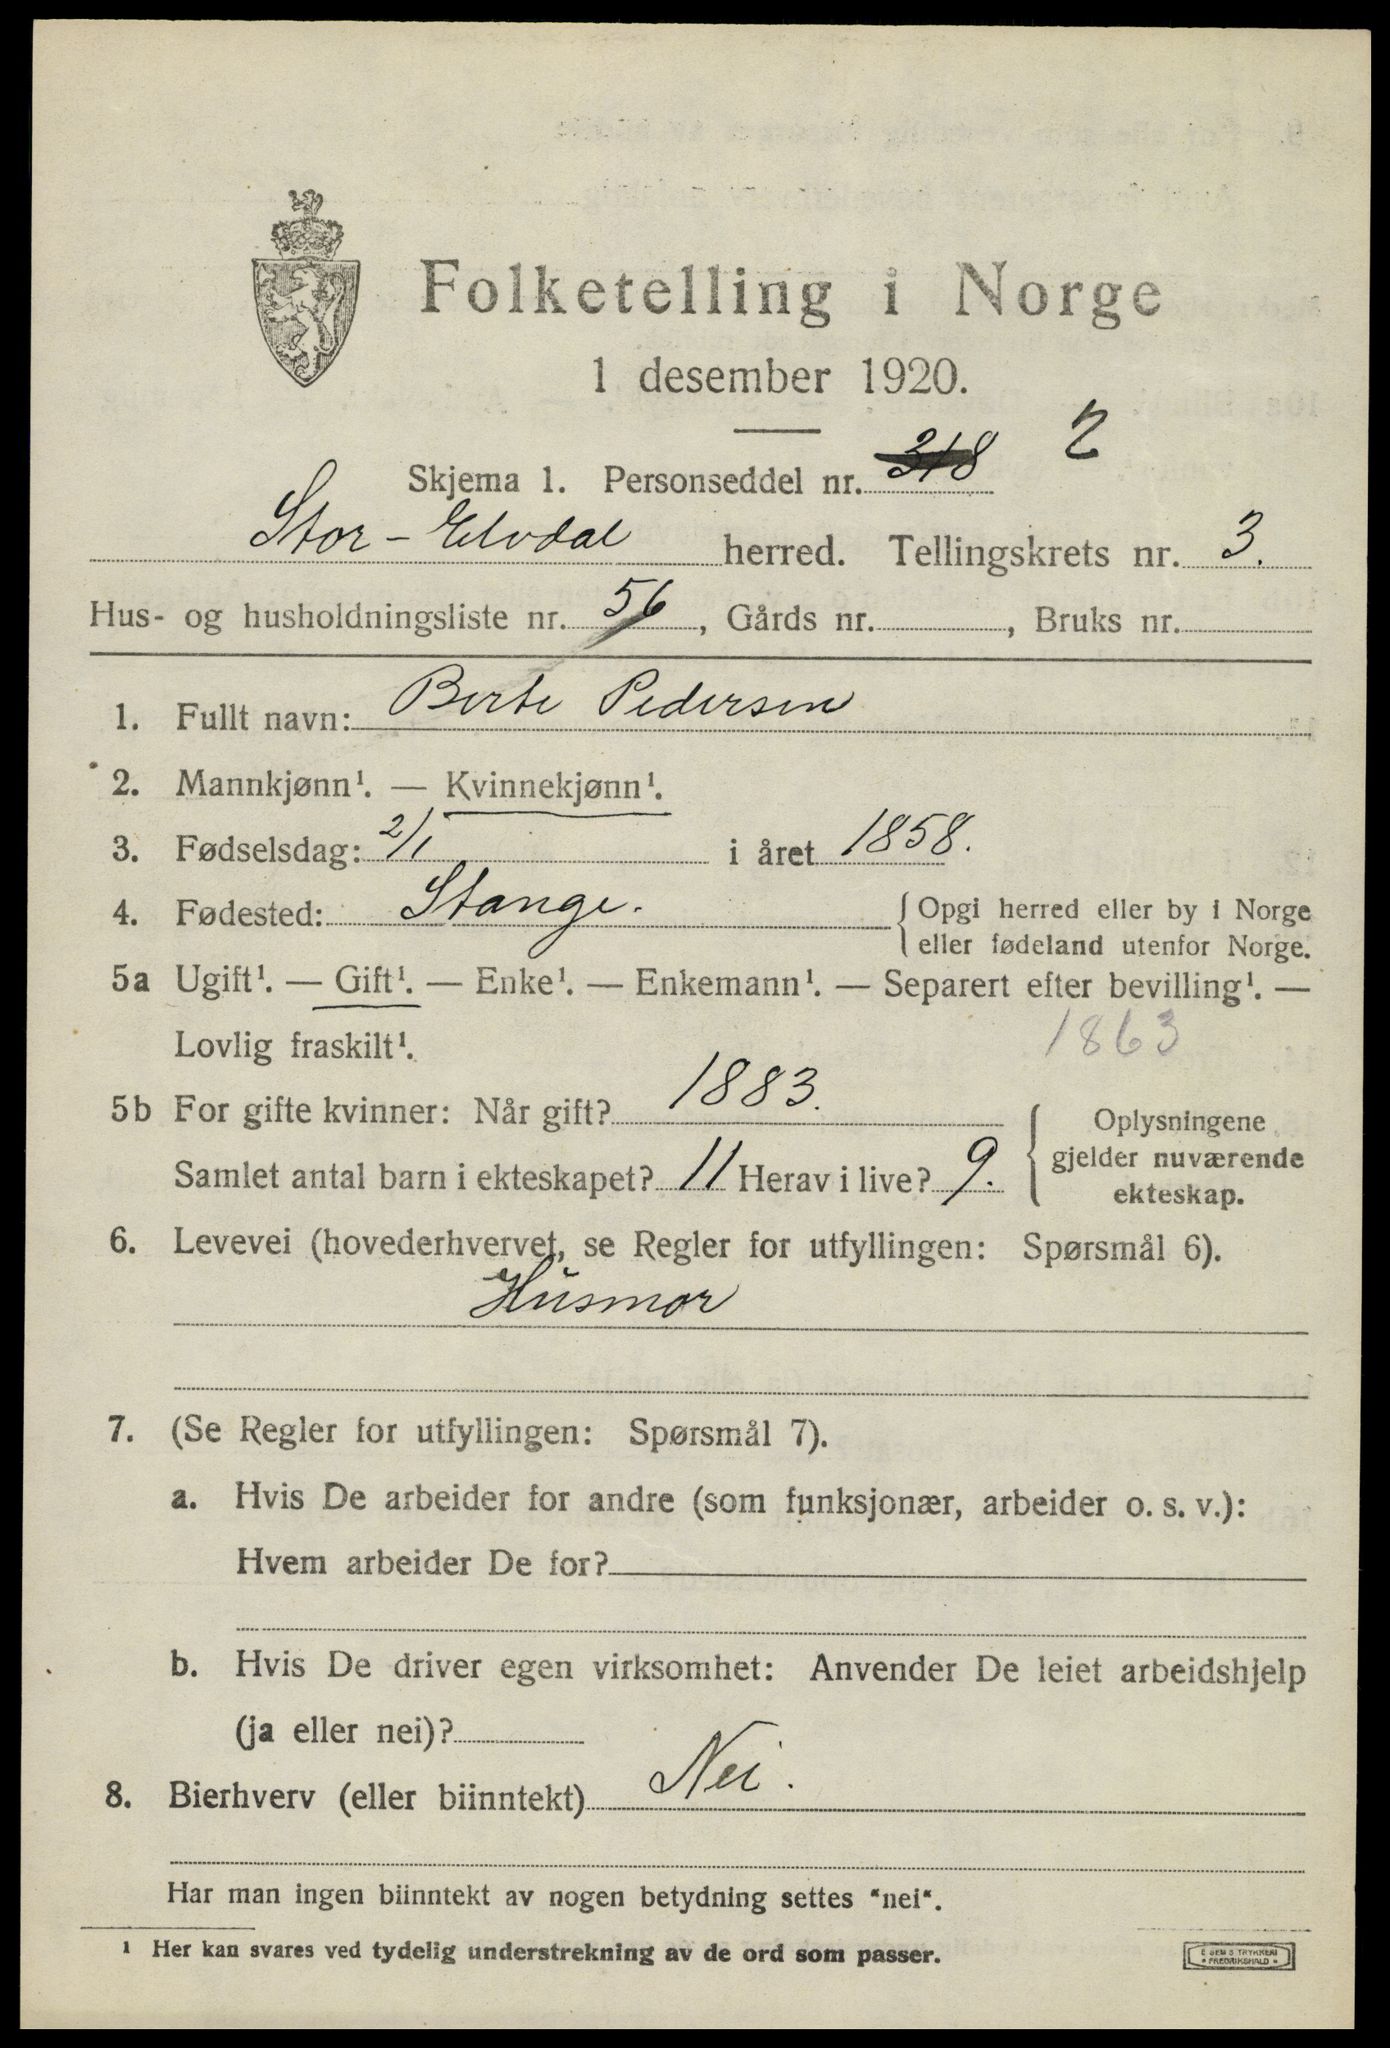 Folketelling i Norge
1 desember 1920.
Skjema 1. Personseddel nr. 318 2
Stor-Elvdal herred. Tellingskrets nr. 3.
Hus- og husholdningsliste nr. 56, Gårds nr. , Bruks nr.
1. Fullt navn: Berte Pedersen
2. Mannkjønn¹. — Kvinnekjønn¹.
3. Fødselsdag: 2/1 i året 1858.
4. Fødested: Stange. { Opgi herred eller by i Norge
eller fødeland utenfor Norge.
5a Ugift¹. — Gift¹. — Enke¹. — Enkemann¹. — Separert efter bevilling¹. —
Lovlig fraskilt¹. 1863
5b For gifte kvinner: Når gift? 1883.
Samlet antal barn i ekteskapet? 11 Herav i live? 9.
{ Oplysningene
gjelder nuværende
ekteskap.
6. Levevei (hovederhvervet, se Regler for utfyllingen: Spørsmål 6).
Husmor
7. (Se Regler for utfyllingen: Spørsmål 7).
a. Hvis De arbeider for andre (som funksjonær, arbeider o. s. v.):
Hvem arbeider De for?
b. Hvis De driver egen virksomhet: Anvender De leiet arbeidshjelp
(ja eller nei)?
8. Bierhverv (eller biinntekt) Nei.
Har man ingen biinntekt av nogen betydning settes "nei".
¹ Her kan svares ved tydelig understrekning av de ord som passer.
E SEM'S TRYKKERI
FREDRIKSHALD